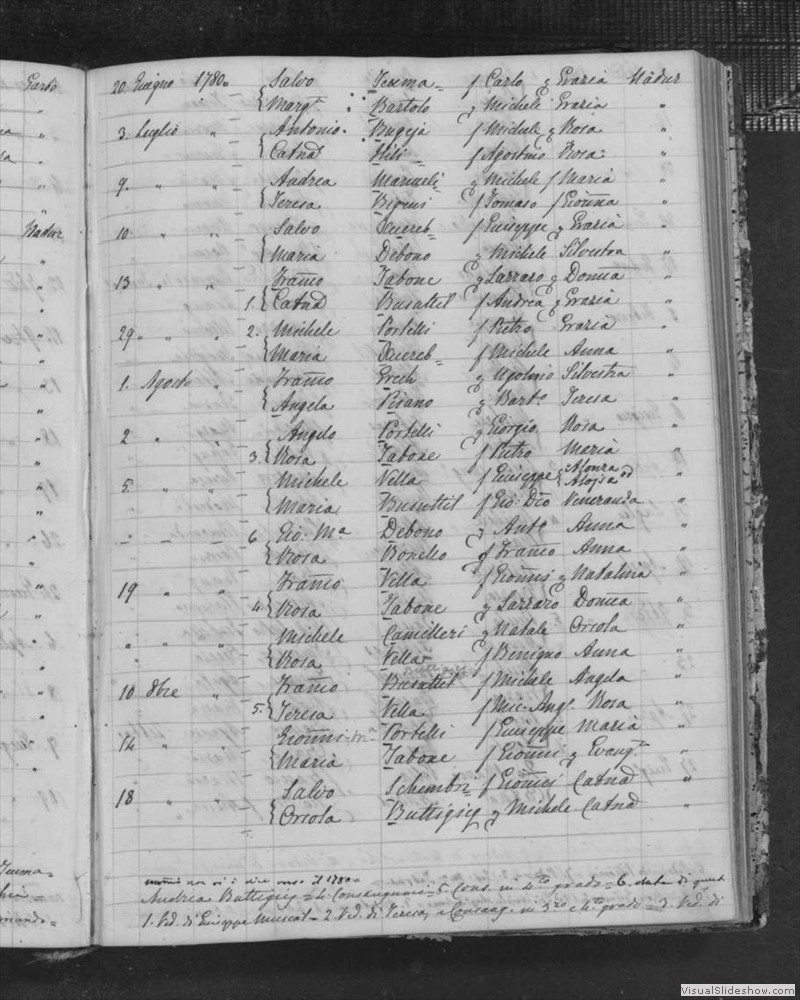 Garbo
20. Giugno 1780. Salvo Teuma f Carlo g Grazia Nadur
Margt Bartolo g Michele Grazia "
3. Luglio " Antonio. Bugeja f Michele g Rosa "
Catnd Hili f Agostino Rosa "
9. " " Andrea Manueli g Michele f Maria "
Teresa f Tomaso f Gionna "
Nadur
10 " " Salvo Xuereb f Giuseppe g Grazia "
Maria Debono g Michele Silvestra "
13 " " Franco Tabone g Lazzaro g Donna "
1. Catnd Busuttil f Andrea g Grazia "
29. " " 2. Michele Portelli f Pietro Grazia "
Maria Xuereb f Michele Anna "
1. Agosto " Franco Grech g Ugolino Silvestra "
Angela Pisano g Barto Teresa "
2 " " Angelo Portelli g Giorgio Rosa "
3. Rosa Tabone f Pietro Maria "
5. " " Michele Vella f Giuseppe "
Maria Busuttil f Gio. Dio Veneranda "
6 Gio. Ma Debono g Anto Anna "
Rosa Bonello g Franco Anna "
19 " " Franco Villa f Gionni g Natalina "
4. Rosa Tabone g Lazzaro Donna "
" " " Michele Camilleri g Natale Orsola "
Rosa Villa f Benigno Anna "
10 8bre " Franco Busuttil f Michele Angela "
5. Teresa Villa f Mic. Angl Rosa "
14 " " Gionni-Ma Portelli f Giuseppe Maria "
Maria Tabone f Gionni g Evangta "
18 " " Salvo Schembri f Gionni Catnd "
Orsola Buttigieg g Michele Catnd "
non si è dice il 1780 =
Andrea Buttigieg = 4 Consanguinei = 5 Cons. in 4to grado = 6. data di
1. Ved. di Giuseppe Muscat = 2 Ved. di Teresa, e Consang. in 3zo e 4to grado = 3. Ved. di
VisualSlideshow.com